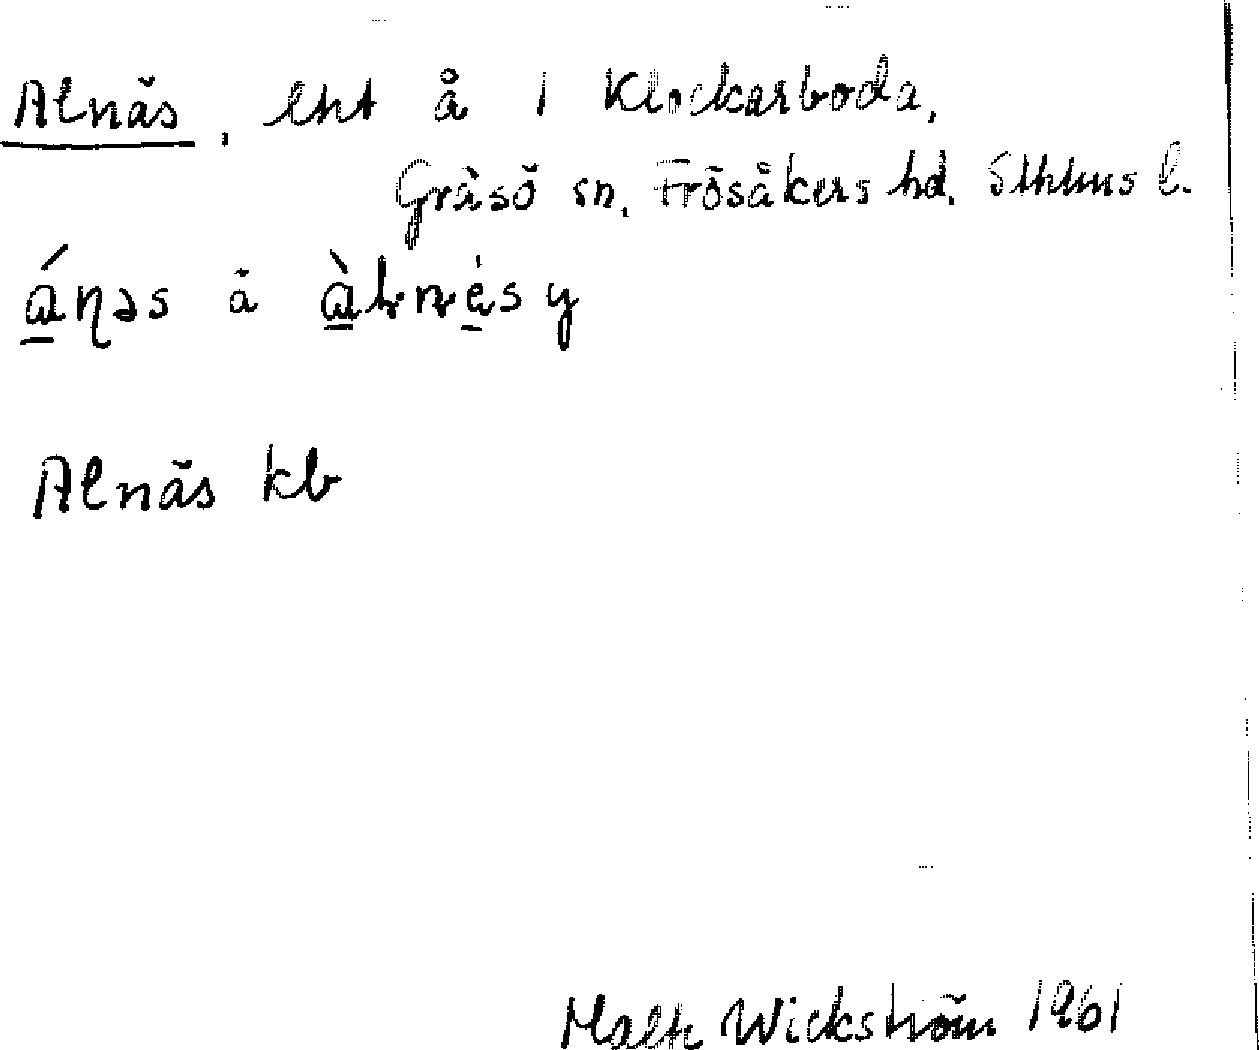 Alnäs, lht å i Klockarboda,
Gräsö sn, Frösåkers hd. Sthlms l.
ánəs å àlnés y
Alnäs kb
Malte Wickström 1961